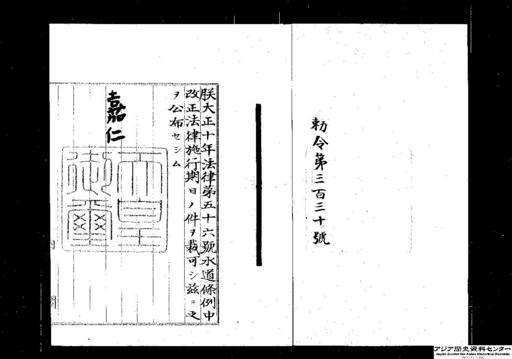 勅令第三百三十號
朕大正十年法律第五十六號水道條例中
改正法律施行期日ノ件ヲ裁可シ茲ニ之
ヲ公布セシム
嘉仁
天皇御璽
アジア歴史資料センター
Japan Center for Asian Historical Records